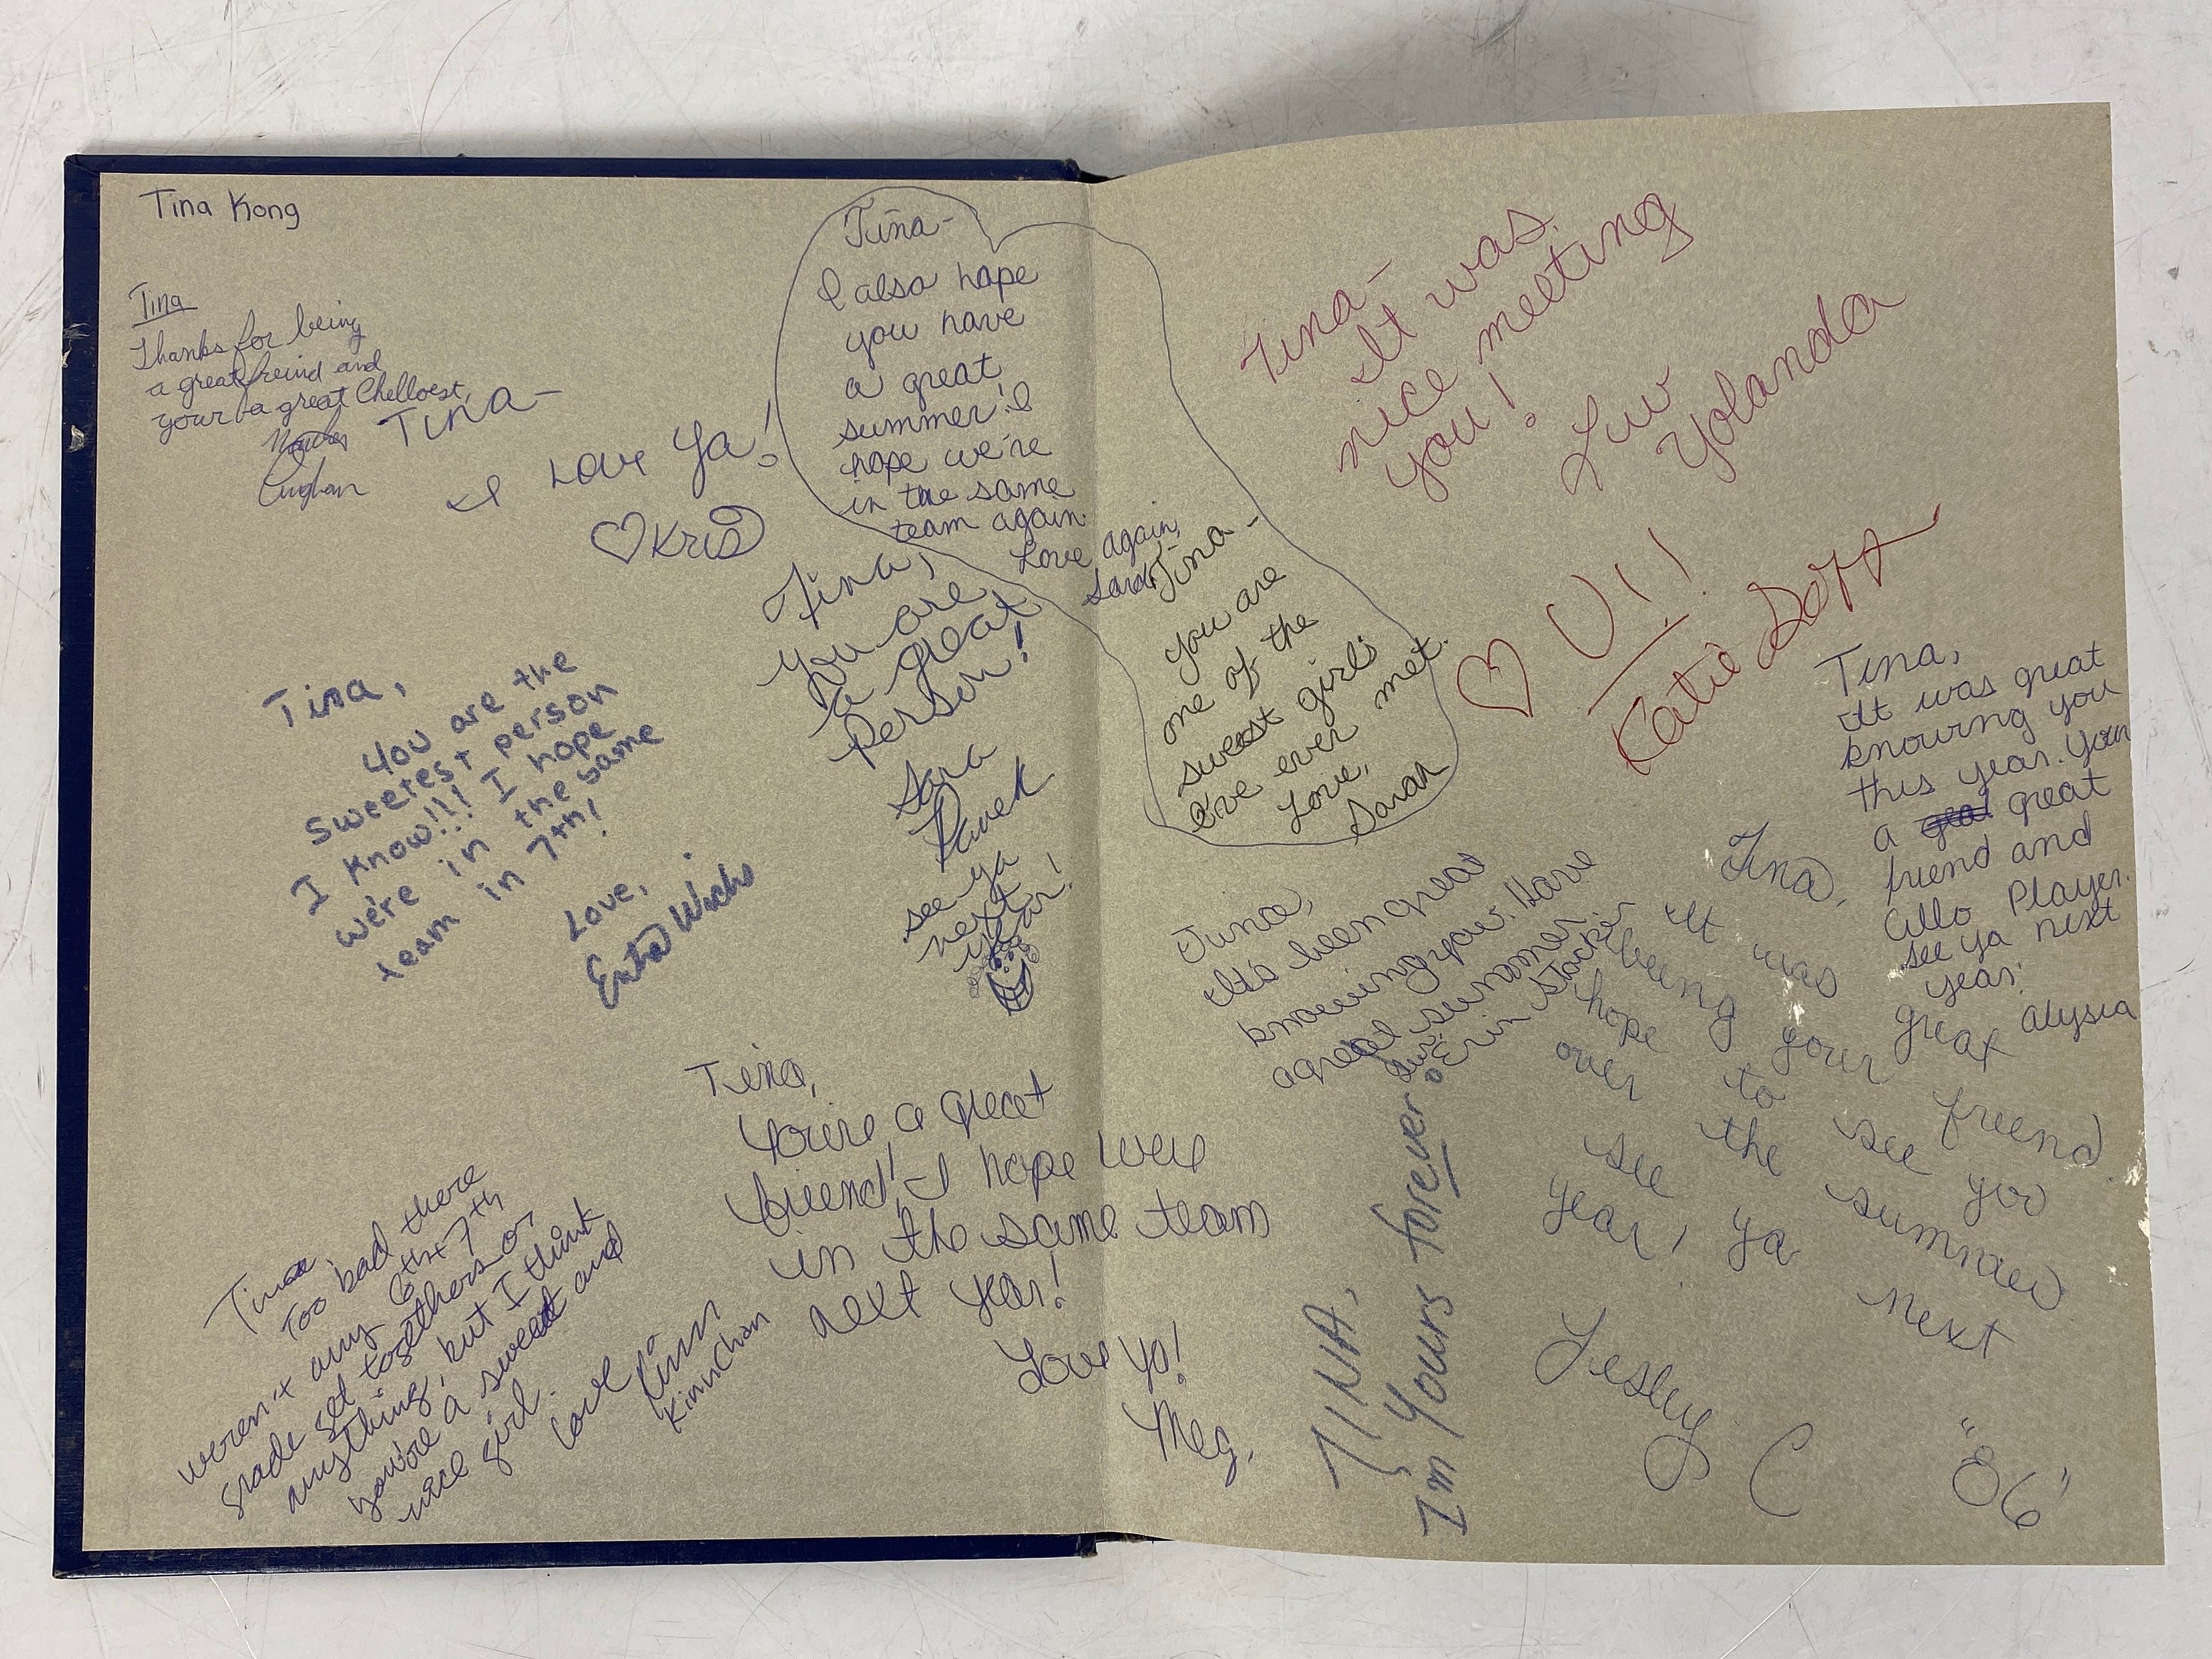 Tina Kong
Tina
Thanks for being
a great freind and
your a great Chelloest,
Tina-
I Love Ya!
♡Kris
Tina-
I also hope
you have
a great
summer! I
hope we're
in the same
team again.
Love again,
Sarah
Tina,
You are
a great
person!
Sara
see ya
next
year!
Tina,
You are the
sweetest person
I know!!! I hope
we're in the same
team in 7th!
Love,
Tina,
You're a great
friend! I hope were
in the same team
next year!
Love Ya!
Meg.
Tina,
Too bad there
weren't any 6th + 7th
grade get togethers or
anything, but I think
you're a sweet and
nice girl.
Love,
Kinn
Kinn Chan
Tina-
It was
nice meeting
you!
Luv
Yolanda
Tina-
you are
one of the
sweest girls
I've ever met.
Love,
Sarah
♡ U!!
Katie
Tina,
It was great
knowing you
this year. Your
a great
friend and
Cello Player.
see ya next
year!
Alysia
Tina,
It's been great
knowing you. Have
a great summer.
Luv,
Erin
Tina,
It was great
being your friend
hope to see you
over the summer
see ya next
year!
Lesley C
"86"
TINA,
I'm Yours forever